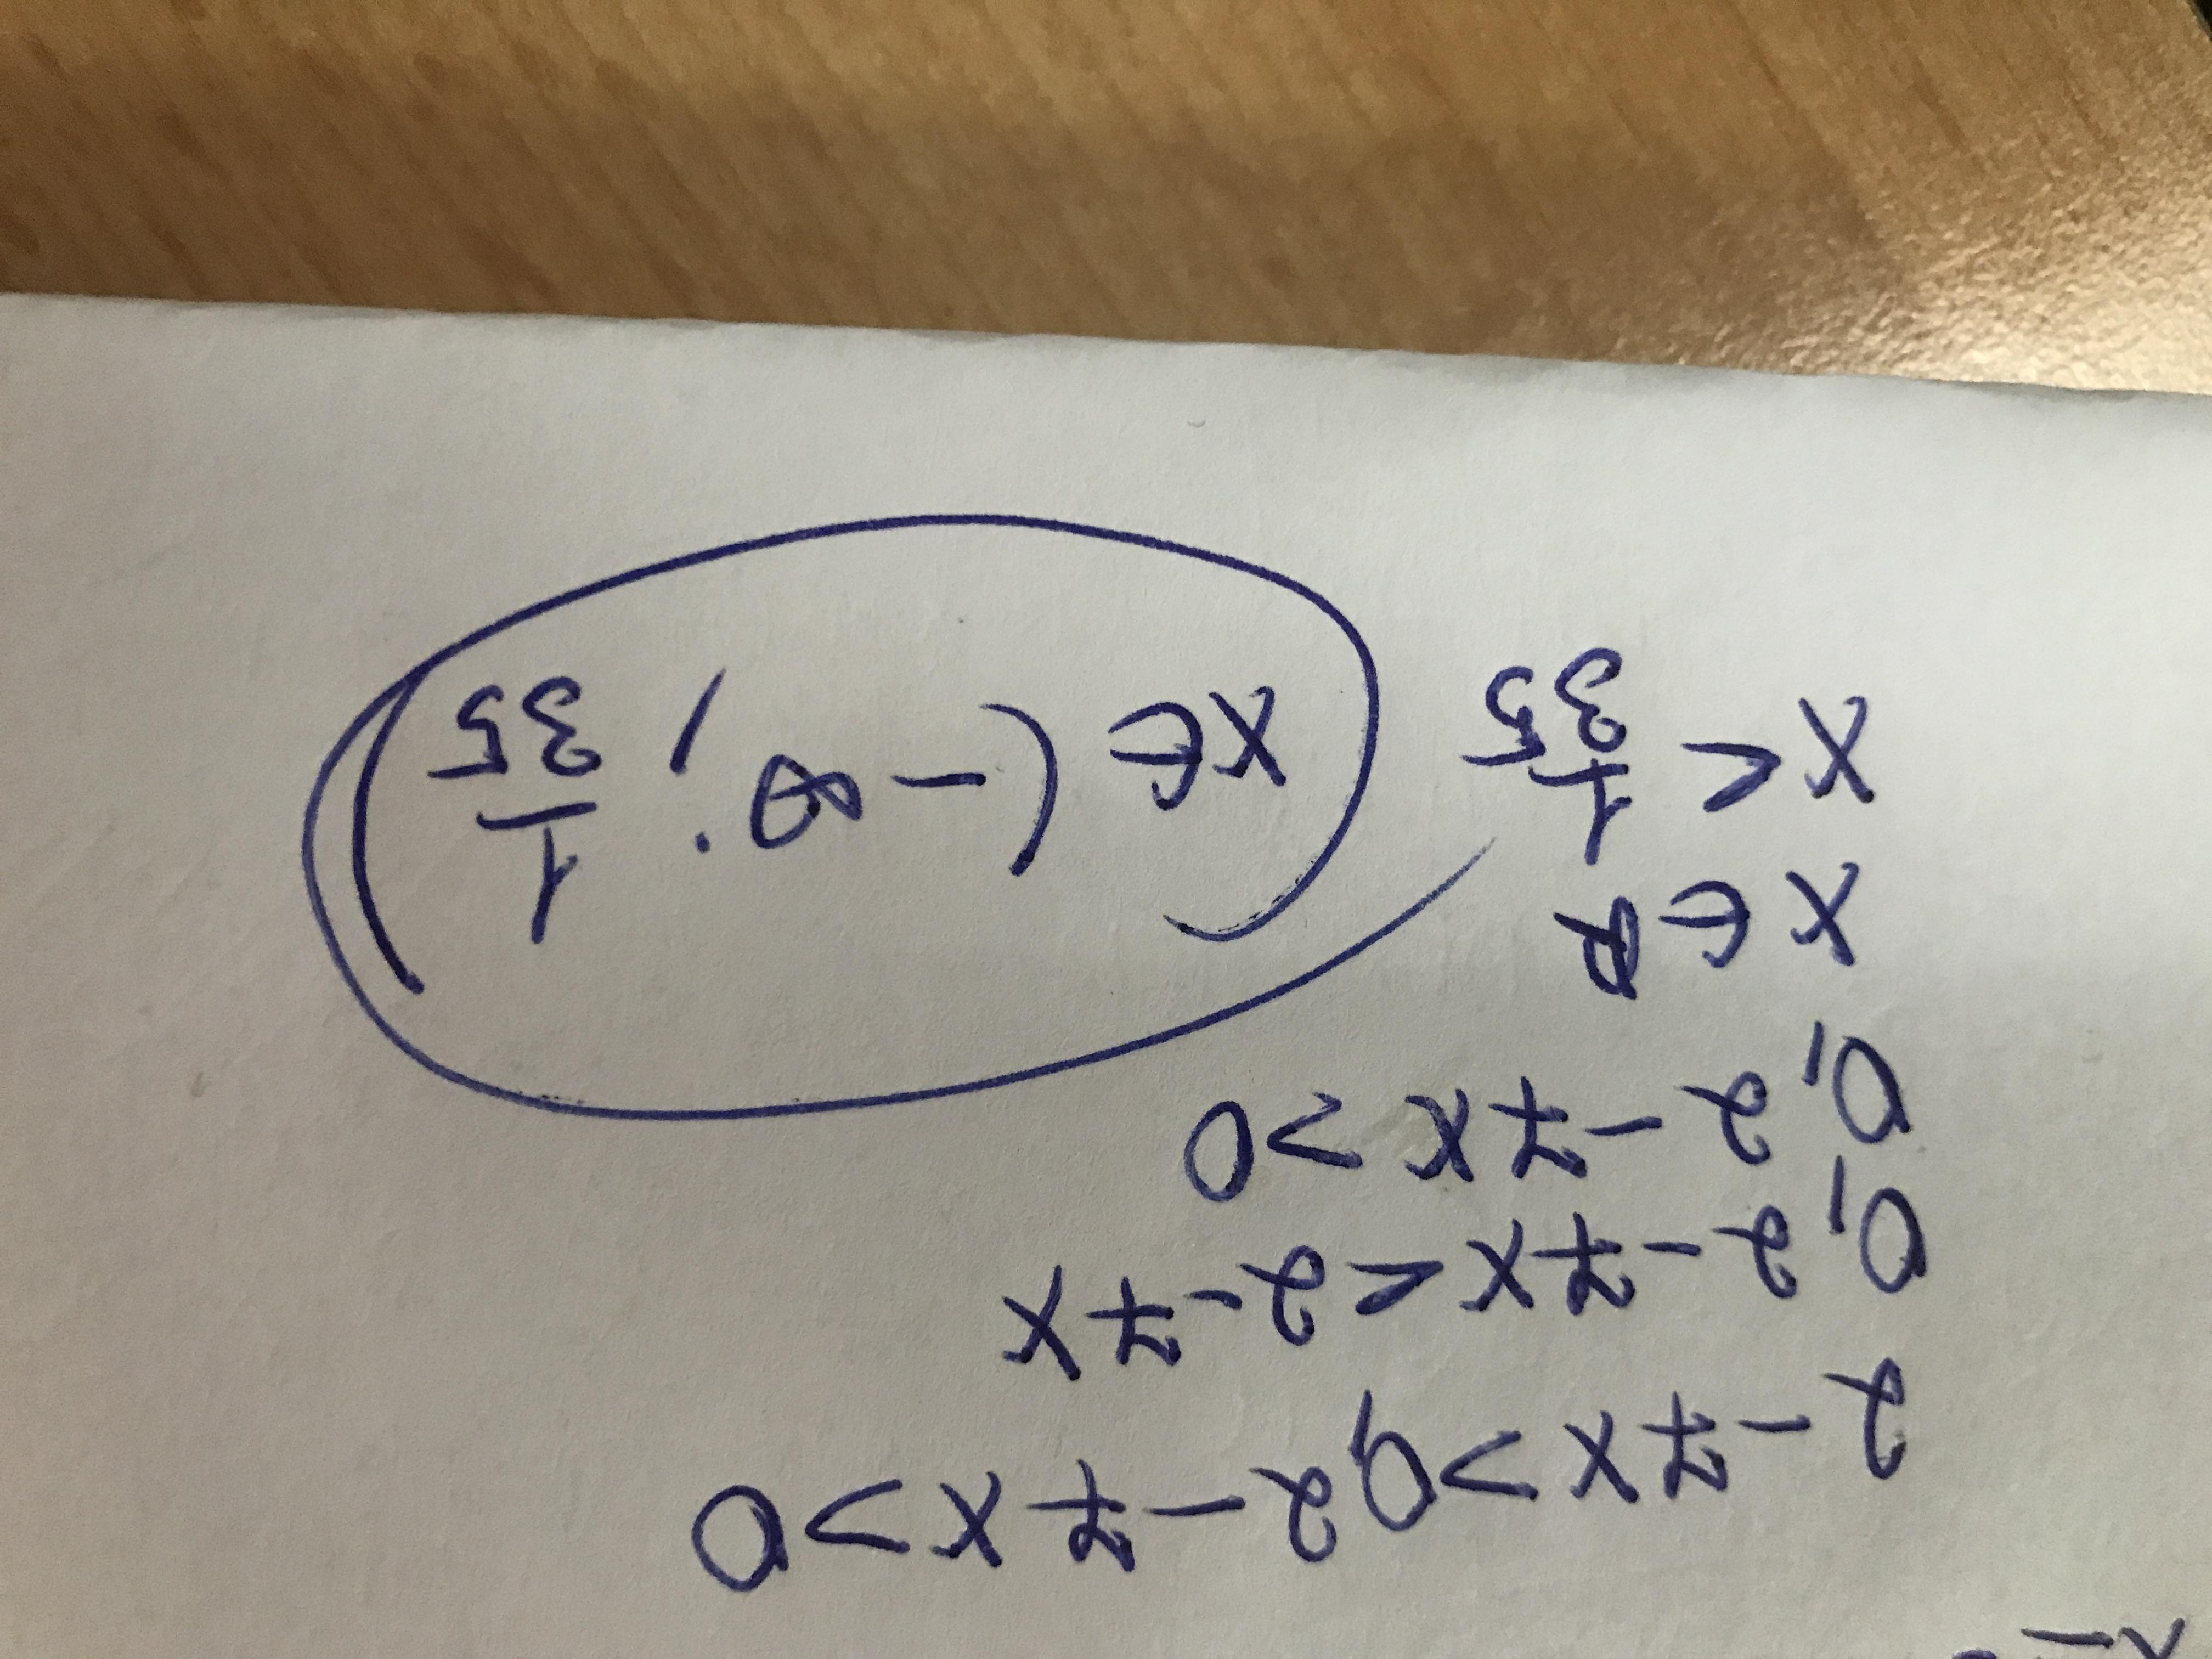 2-7x>0,2-7x>0
0,2-7x<2-7x
0,2-7x>0
x∈R
x<1/35
x∈(-∞; 1/35)